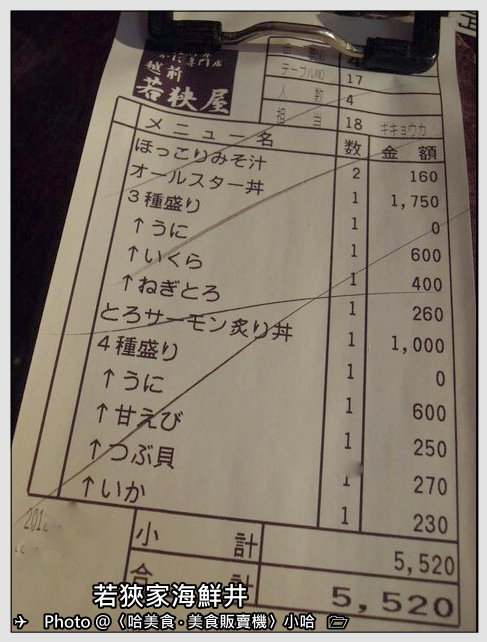 越前
若狭屋
テーブルNO 17
人数 4
担当 18 キキョウカ
メニュー名 数 金額
ほっこりみそ汁 2 160
オールスター丼 1 1,750
3種盛り 1 0
↑うに 1 600
↑いくら 1 400
↑ねぎとろ 1 260
とろサーモン炙り丼 1 1,000
4種盛り 1 0
↑うに 1 600
↑甘えび 1 250
↑つぶ貝 1 270
↑いか 1 230
小計 5,520
合計 5,520
若狹家海鮮丼
Photo @〈哈美食·美食販賣機〉小哈